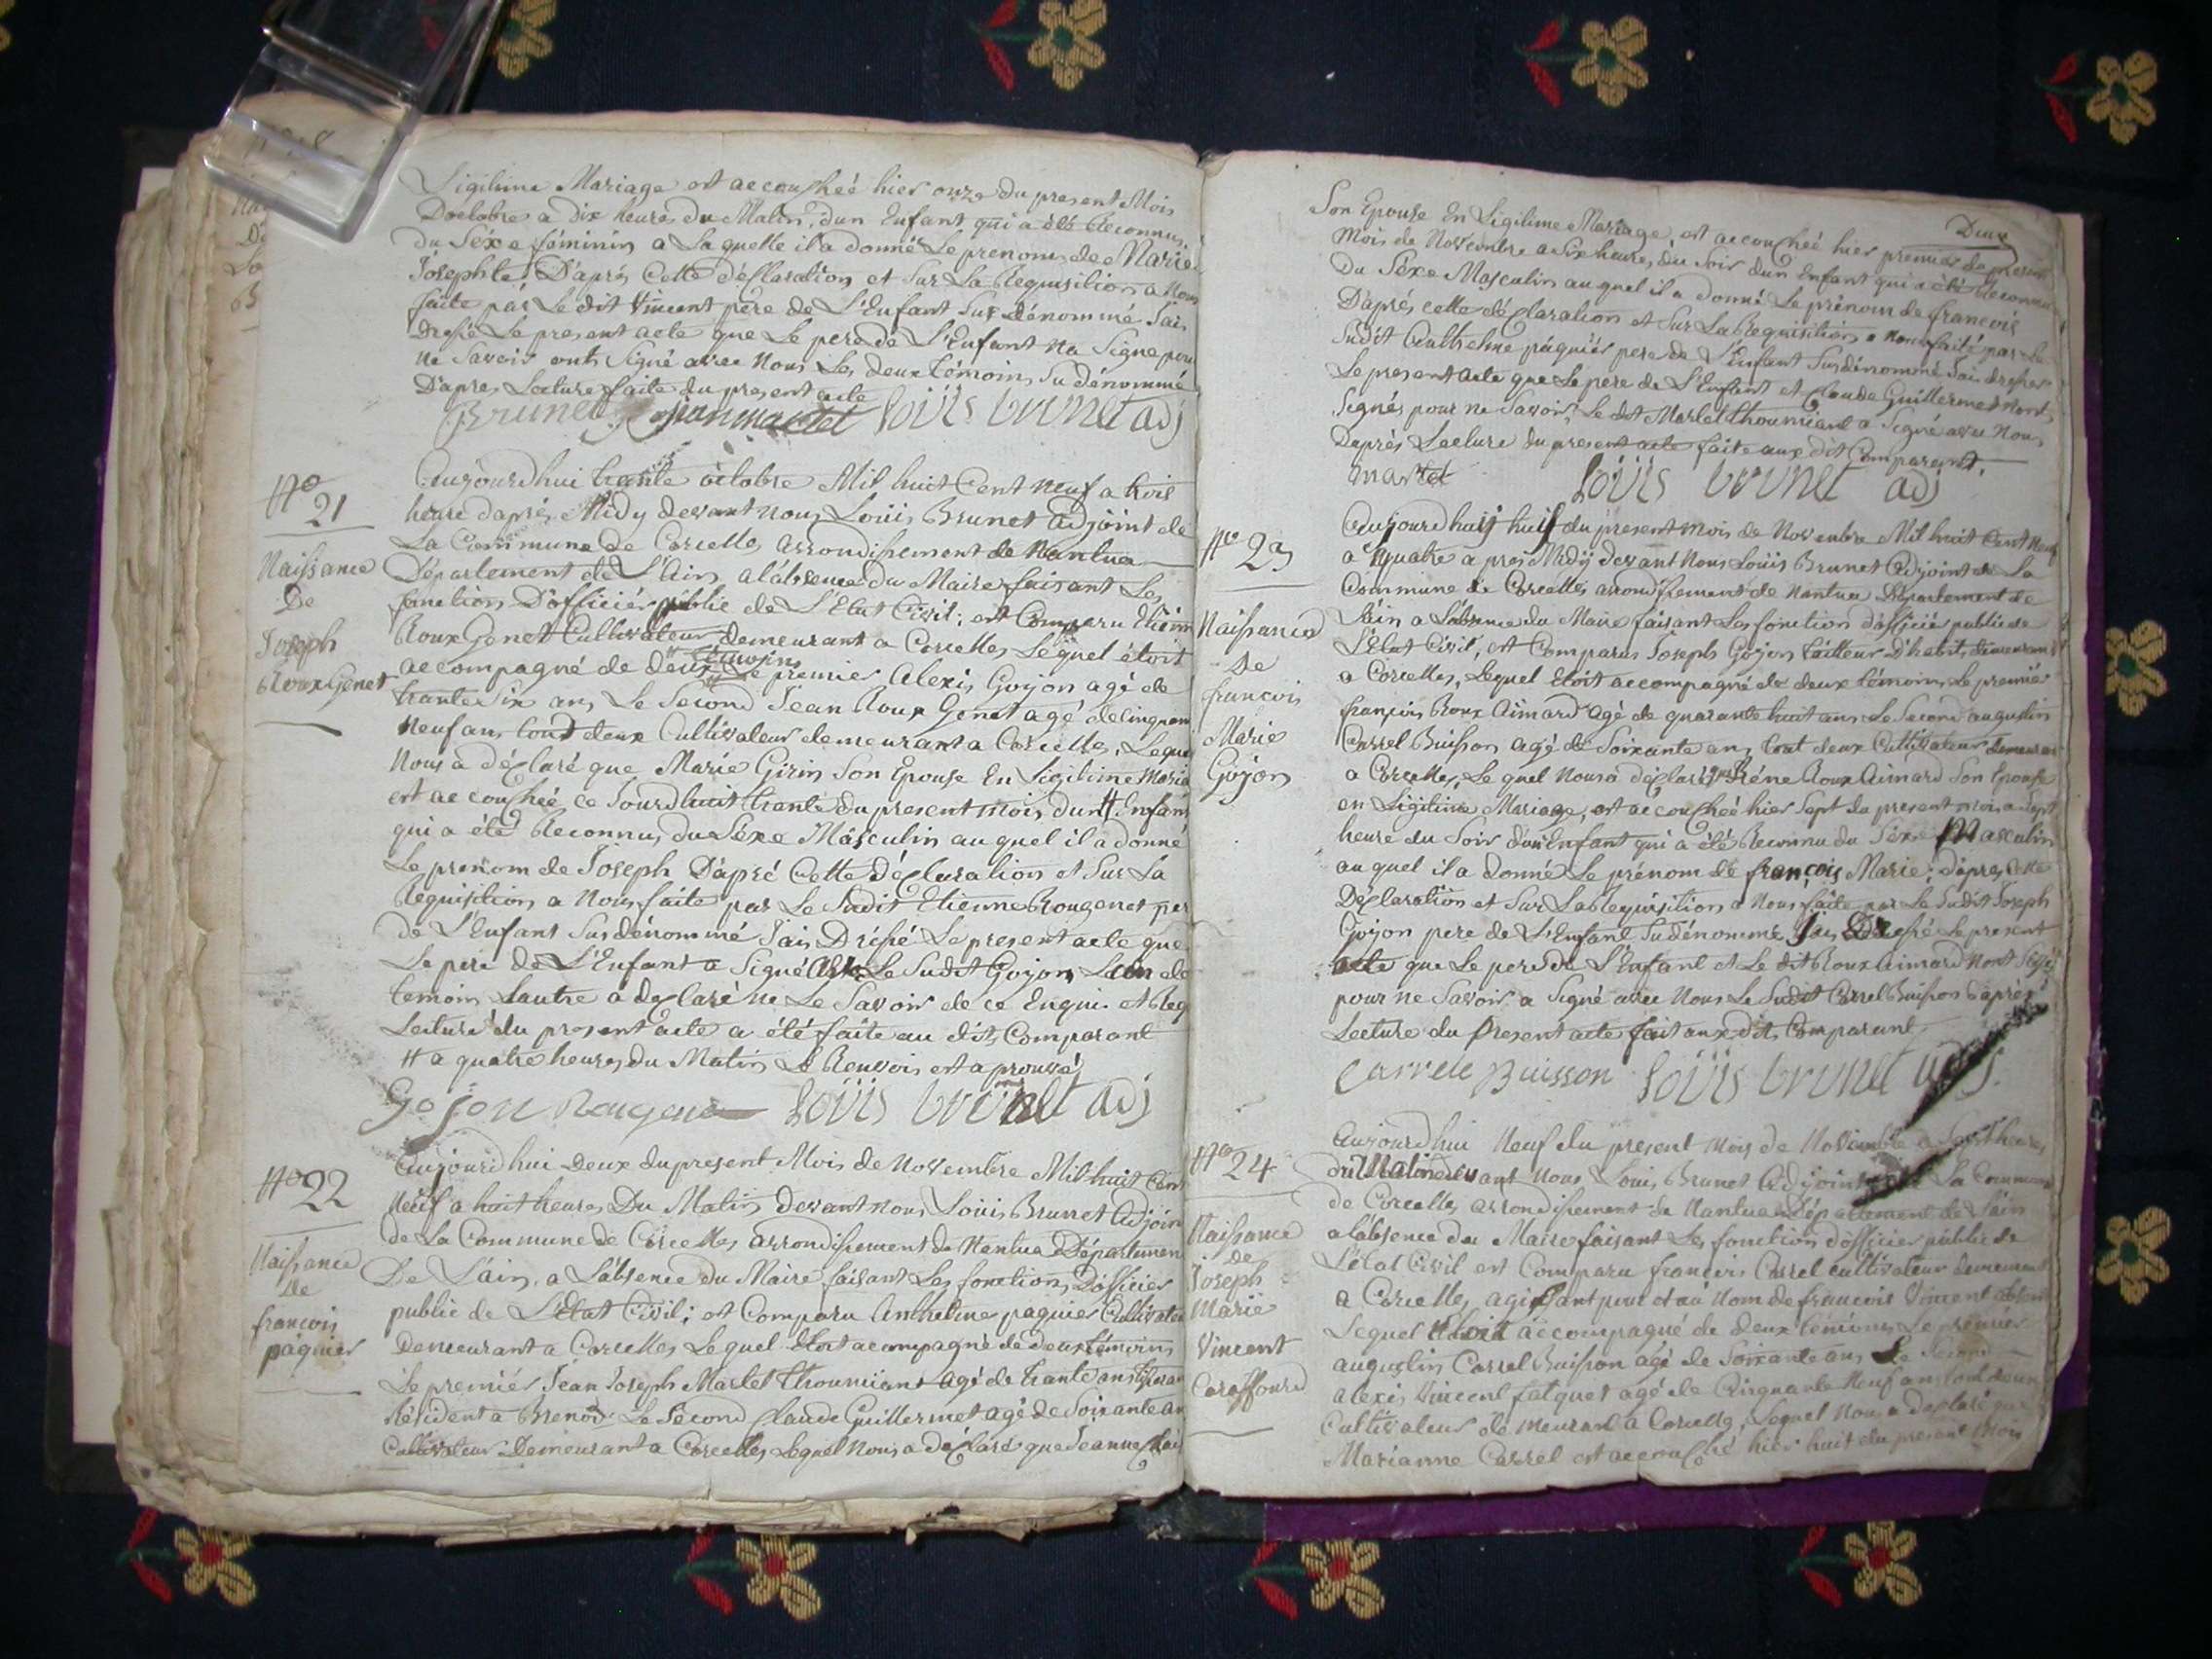 Légitime Mariage est accouchéé hier onze du present Mois
Doctobre a Dix heures du Matin, dun Enfant qui a été Reconnu
du Séxe féminin a Laquelle il a donné Le prenom de Marie
Josephte, D'aprés Cette déClaration et Sur La Requisition a Nous
faite par Le dit Vincent pere de L'Enfant Sus dénommé J'ais
Dressé Le present acte que Le pere de L'Enfant Na Signe pour
Ne Savoir onts Signé avec Nous Les deux témoins Su dénommé
D'apres Lecture faite du present acte
Brunet martel Loüis brunet adj
No 21
Naissance
De
Joseph
RouxGenet
Aujourdhui trante octobre Mil huit Cent Neuf a trois
heure daprés Midy devant nous Louis Brunet adjoint de
La Commune de Corcelles arrondissement de Nantua
Département de L'Ain, a l'absence du Maire faisant Les
fonctions D'officiér public de L'Etat Civil; est Comparu Etienn
Roux Genet Cultivateur demeurant a Corcelles Lequel étoit
accompagné de deux témoins Le premier Alexis Goyon agé de
trante Six ans, Le Second Jean Roux Genet agé de cinquan
Neuf ans tout deux Cultivateur demeurant a Corcelles, Leque
Nous a déClaré que Marie Girin Son Epouse En Légitime Maria
est accouchéé, ce Jourdhuit trante du present mois, dun # Enfan
qui a été Reconnu, du Séxe Masculin au quel il a donné
Le prenom de Joseph D'apré Cette déClaration et Sur La
Requisition a Nous faite par Le Sudit Etienne Rougenet per
de L'Enfant Sus dénommé J'ais Dréssé Le present acte que
Le pere de L'Enfant a Signé Le Sudit Goyon Lun de
temoins Lautre a déClaré ne Le Savoir de ce Enquis et Req
Lecture du present acte a été faite au dit Comparant
# a quatre heures du Matin Le Renvois est aprouvé
Gojon Rougenet Loüis brunet adj
No 22
Naissance
De
francois
páquier
Aujourdhui Deux du present Mois de Novembre Mil huit Cent
Neuf a huit heures Du Matin devant nous Louis Brunet Adjoin
de La Commune de Corcelles arrondissement de Nantua Départemen
De L'ain, a L'absence du Maire faisant Les fonctions D'officier
public de L'Etat Civil; est Comparu Anthelme paquier Cultivateu
Demeurant a Corcelles Lequel Etoit accompagné de deux témoins
Le premiér Jean Joseph Martel thoumiant agé de trante ans
Résident a Brenod. Le Second Claude Guillermet agé de Soixante an
Cultivateur Demeurant a Corcelles Lequel Nous a déClaré que Jeanne
Son Epouse En Légitime Mariage, est accouchéé hier premier du present
Deux
Mois de Novembre a Six heures du Soir dun Enfant qui a été Reconnu
Du Séxe Masculin au quel il a donné Le prénom de francois
D'aprés cette déClaration et Sur La Requisition a nous faite par Le
Sudit Anthelme páquiér pere de L'Enfant Susdénommé J'ais dressé
Le present acte que Le pere de L'Enfant et Claude Guillermet Nont
Signés pour ne Savoir, Le dit Martel thoumiant a Signé avec Nous
D'aprés Lecture du present acte faite aux dit Comparant.
martel Loüis brunet adj
No 23
Naissance
De
francois
Marie
Goyon
Aujourdhuij huit du present mois de Novenbre Mil huit Cent Neuf
a quatre a pres Midÿ devant Nous Loüis Brunet Adjoint de La
Commune de Corcelles arrondissement de Nantua Département de
L'ain a L'absence du Maire faisant Les fonction d'officiér public de
L'Etat Civil, est Comparus Joseph Goyon tailleur D'habit, demeurant
a Corcelles, Lequel Etoit accompagné de deux témoins, Le premiér
françois Roux Aimard agé de quarante huit ans Le Second augustin
Carrel Buisson agé de Soixante ans, tout deux Cultivateur demeuran
a Corcelles, Le quel Nous a déClaré que Réne Roux Aimard Son Epouse
en Légitime Mariage, est accouchéé hier Sept du present mois a Sept
heure du Soir dun Enfant qui a été Reconnu du Séxe Masculin
au quel il a donné Le prénom de françois Marie; D'apres Cette
DéClaration et Sur La Requisition a Nous faite par Le Sudit Joseph
Goyon pere de L'Enfant Su dénommé J'ais Dressé Le present
acte que Le pere de L'Enfant et Le dit Roux Aimard Nont Signé
pour ne Savoir a Signé avec Nous Le Sudit Carrel Buisson D'aprés
Lecture du present acte fait aux dits Comparant
Carrele Buisson Loüis brunet adj.
No 24
Naissance
de
Joseph
Marie
Vincent
Caraffourd
Aujourdhui Neuf du present mois de Novembre a Sept heures
du Matin devant Nous Louis Brunet Adjoint de La Commune
de Corcelles arrondissement de Nantua Département de L'ain
a l'absence du Maire faisant Les fonction d'officier public de
L'état Civil est Comparu francois Carrel cultivateur demeurant
a Corcelles, agissant pour et au Nom de francois Vincent absent
Lequel Etoit accompagné de deux témoins Le premiér
augustin Carrel Buisson agé de Soixante ans, Le Second
alexis Vincent falquet agé de Cinquante Neuf ans tout deux
Cultivateur demeurant a Corcelles, Lequel Nous a déclaré que
Marianne Carrel est accouché hier huit du present Mois